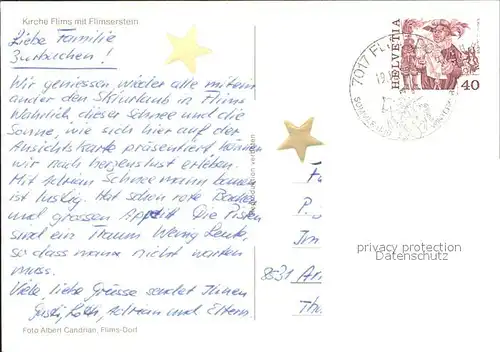 Kirche Flims mit Flimserstein
Liebe Familie
Zurbuchen!
Wir geniessen wieder alle mitein
ander den Skiurlaub in Flims
Wahrlich dieser Schnee und die
Sonne, wie sich hier auf der
Ansichtskarte präsentiert können
wir nach herzenslust erleben.
Mit Adrian Schneemann bauen
ist lustig. Hat schon rote Backen
und grossen Appetit. Die Pisten
sind ein Traum Wenig Leute,
so dass mann nicht warten
muss.
Viele, liebe Grüsse sendet Ihnen
Adrian und Eltern
Foto Albert Candrian, Flims-Dorf
Reproduktion verboten
7017 FL
19.
SOMMER
WINTER
HELVETIA
40
Fa
P.
Im
8031
Th
privacy protection
Datenschutz